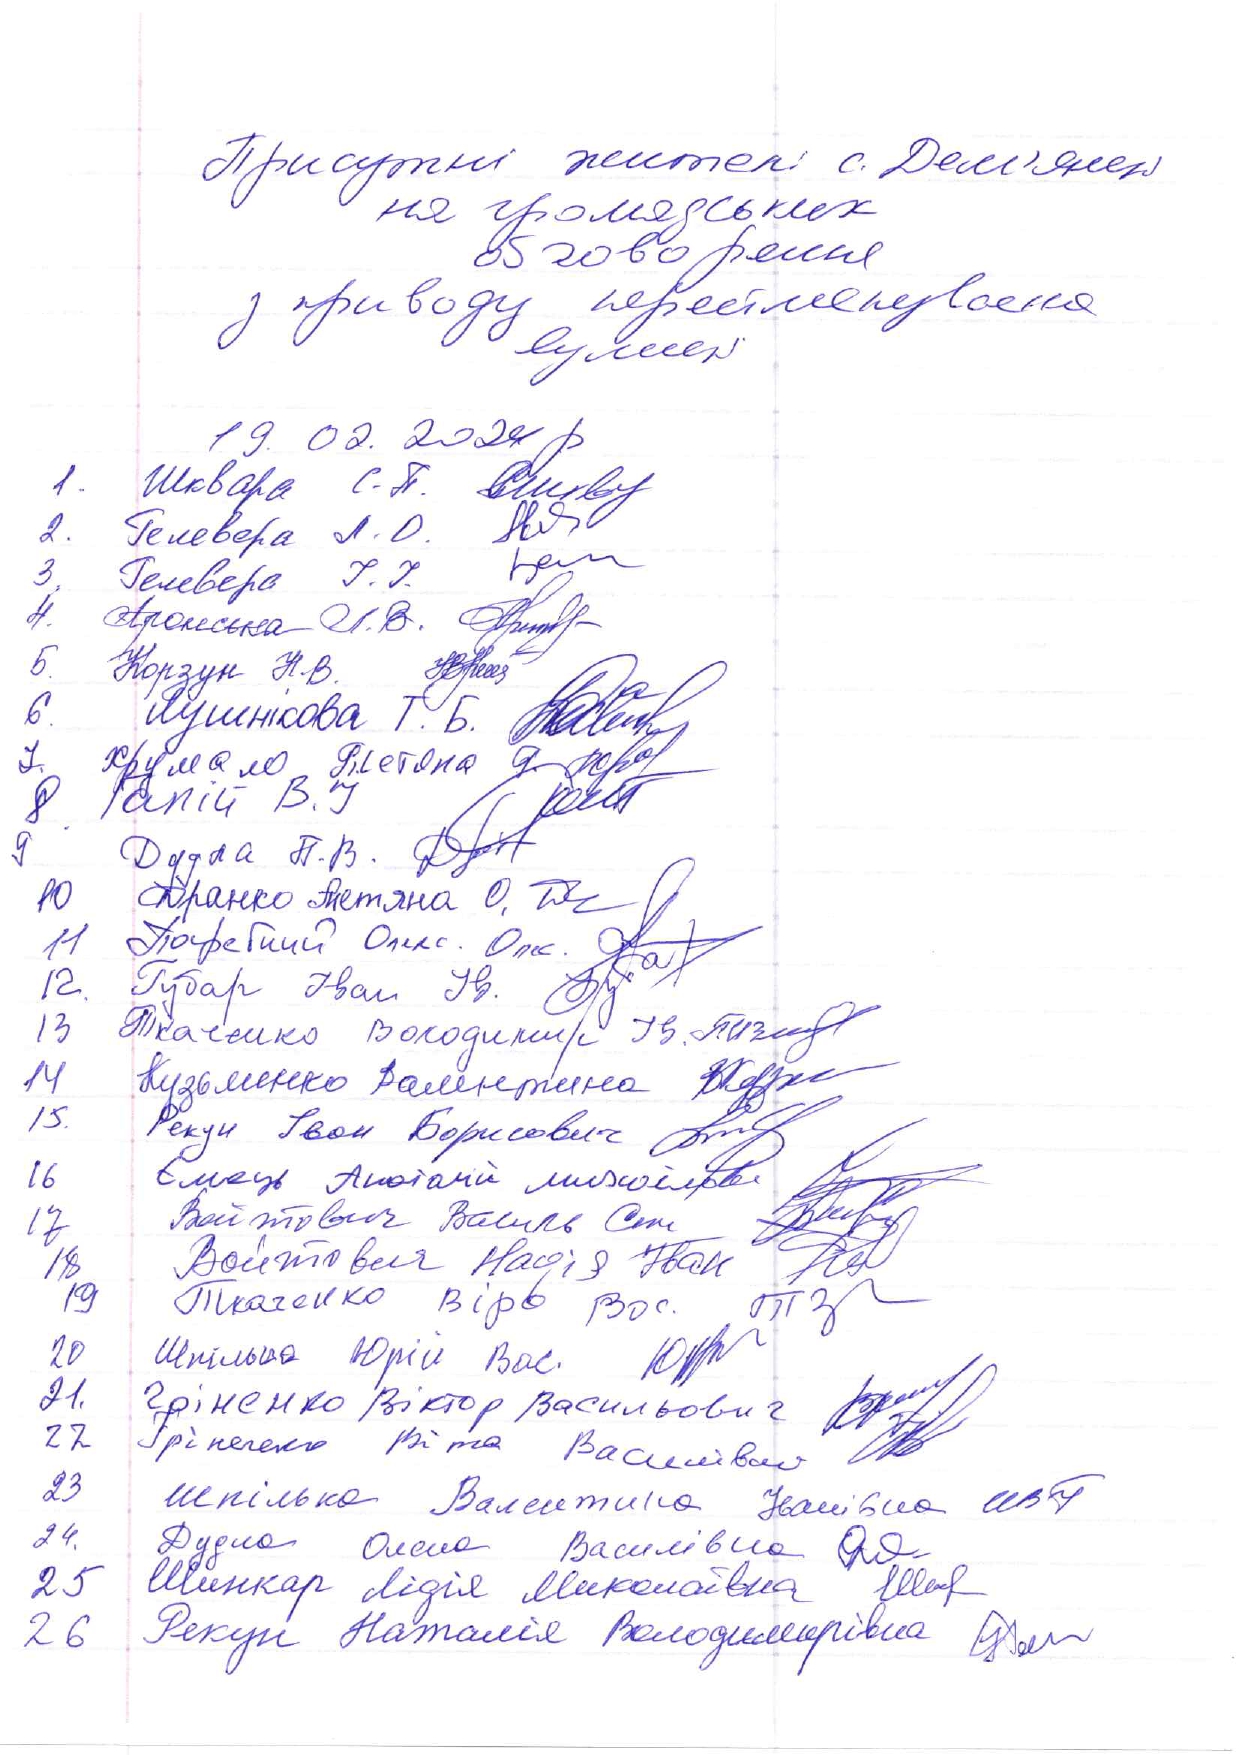 Присутні жителі с. Дем'янці
на громадських
обговорення
з приводу перейменування
вулиці
19.02.2024 р
1. Шквара С.П.
2. Гелевера Л.О.
3. Гелевера І.І.
4. І.В.
5. Корзун Н.В.
6. Лушнікова Т.Б.
7. Хрумало Тетяна
8 Гапій В.І
9 Дудла П.В.
10 Франко Тетяна О.
11 Олек. Олк.
12. Губар Іван Ів.
13 Ткаченко Володимир Ів.
14 Кузьменко Валентина
15. Рекун Іван Борисович
16 Ємець Анатолій
17 Войтович Василь
18 Войтович Надія Іван
19 Ткаченко Віра Вас.
20 Шпілька Юрій Вас.
21. Гріненко Віктор Васильович
22 Віта Василівна
23 Шпілька Валентина Іванівна
24. Дудла Олена Василівна
25 Шинкар Лідія Миколаївна
26 Рекун Наталія Володимирівна